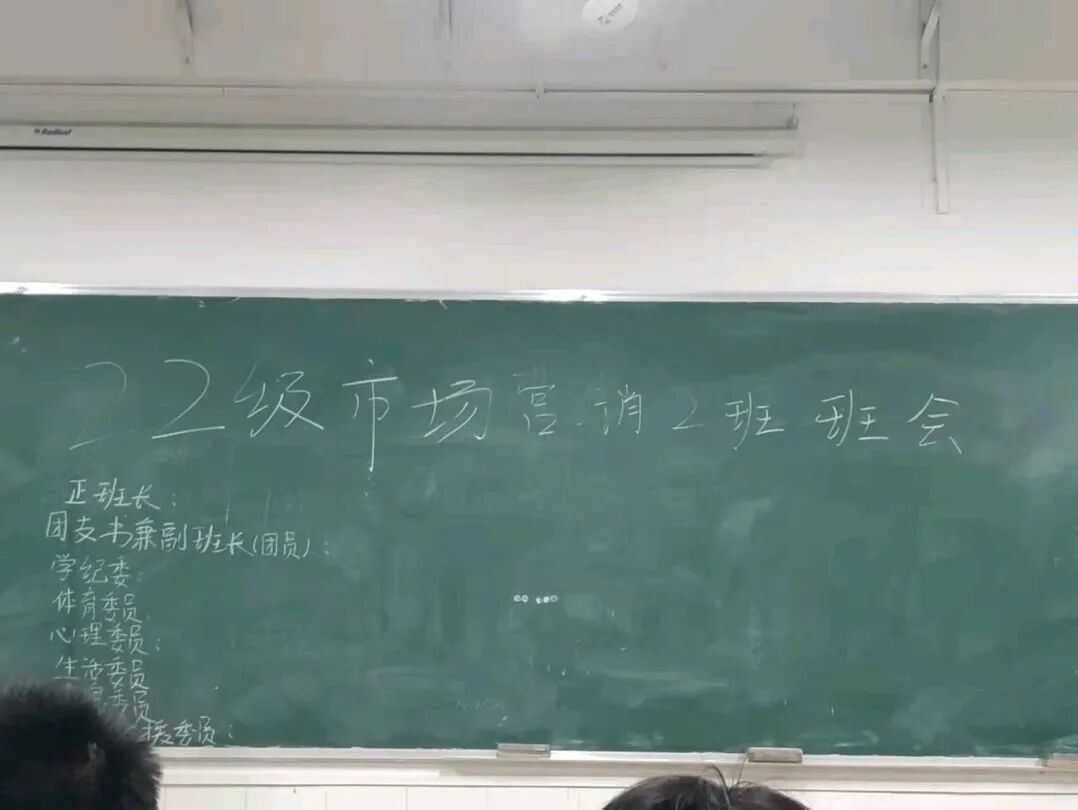 Redleaf
22级市场营销2班 班会
正班长：
团支书兼副班长(团员)：
学纪委：
体育委员
心理委员：
生活委员
委员
援委员：